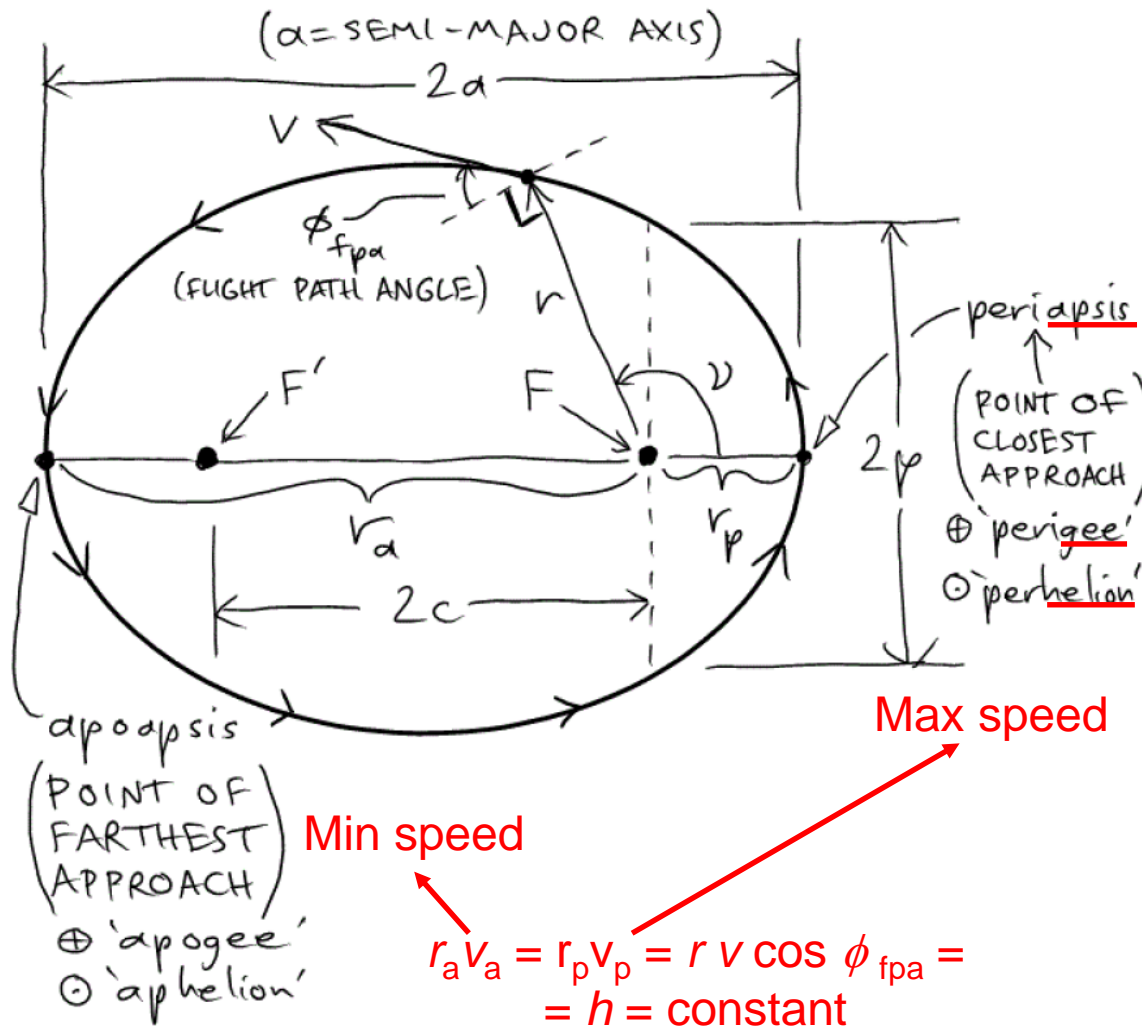 (a = SEMI-MAJOR AXIS)
2a
V
ϕfpa
(FLIGHT PATH ANGLE)
r
ν
F'
F
ra
rp
2c
2p
periapsis
(POINT OF
CLOSEST
APPROACH)
⊕ 'perigee'
⊙ 'perhelion'
apoapsis
(POINT OF
FARTHEST
APPROACH)
⊕ 'apogee'
⊙ 'aphelion'
Max speed
Min speed
rₐvₐ = rₚvₚ = r v cos ϕ fpa =
= h = constant